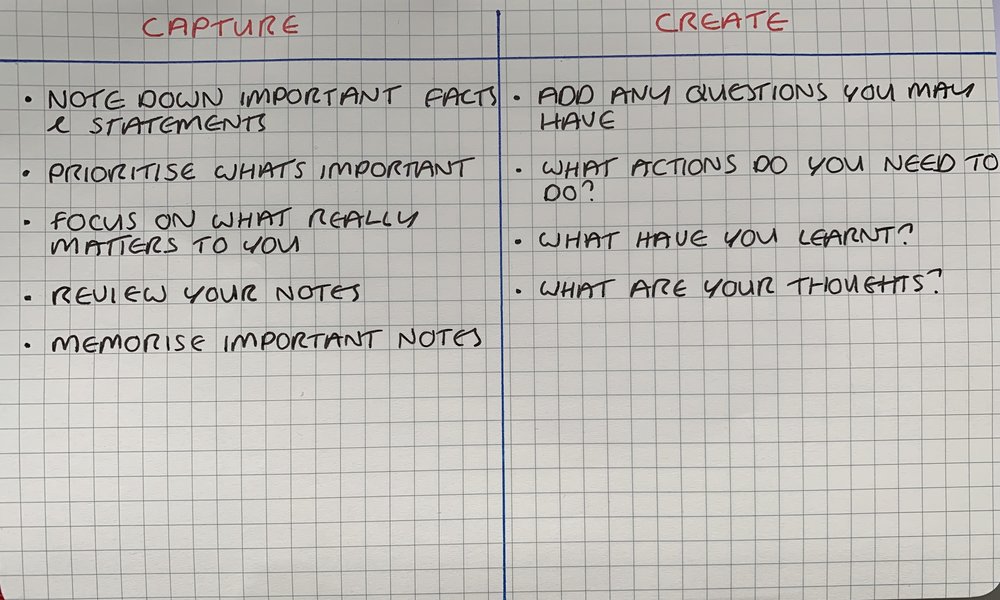 CAPTURE
• NOTE DOWN IMPORTANT FACTS
& STATEMENTS
• PRIORITISE WHATS IMPORTANT
• FOCUS ON WHAT REALLY
MATTERS TO YOU
• REVIEW YOUR NOTES
• MEMORISE IMPORTANT NOTES
CREATE
• ADD ANY QUESTIONS YOU MAY
HAVE
• WHAT ACTIONS DO YOU NEED TO
DO?
• WHAT HAVE YOU LEARNT?
• WHAT ARE YOUR THOUGHTS?